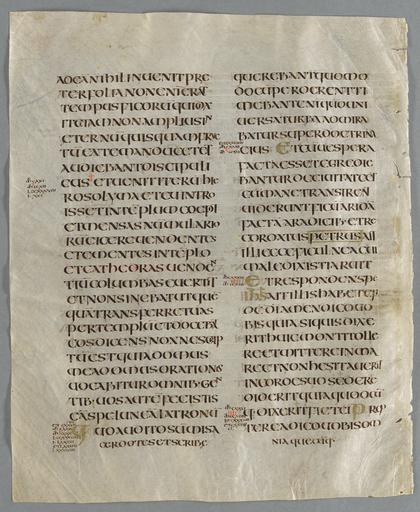 AD EA NIHIL INUENIT PRE
TER FOLIA NON ENI ERAT
TEMPUS FICORU QUI DIX
IT EI IAM NON AMPLIUS IN
ETERNU QUISQUAM FRUC
TU EX TE MANDUCET ET
AUDIEBANT DISCIPULI
EIUS ET UENIT ITERU HIE
ROSOLYMA ET CU INTRO
ISSET IN TEPLUM COEPI
ET MENSAS NUMULARIO
RU EICERE UENDENTES
ET EMENTES IN TEPLO
ET CATHEDRAS UENDEN
TIU COLUMBAS EUERTIT
ET NON SINEBAT UT QUE
QUA TRANSFERRET UAS
PER TEMPLU ET DOCEBAT
EOS DICENS NONNE SCRIP
TU EST QUIA DOMUS
MEA DOMUS ORATIONIS
UOCABITUR OMNIB GEN
TIB UOS AUTE FECISTIS
EA SPELUNCA LATRONU
QUO AUDITO SUMMI SA
CERDOTES ET SCRIBE
QUEREBANT QUOMO
DO EU PERDERENT TI
MEBANT ENI QUO UNI
UERSA TURBA ADMIRA
BATUR SUPER DOCTRINA
EIUS ET CU UESPERA
FACTA ESSET EGREDIE
BANTUR DE CIUITATE ET
CU MANE TRANSIREN
UIDERUNT FICU ARIDA
FACTA A RADICIB ET RE
CORDATUS PETRUS AIT
ILLI ECCE FICULNEA CUI
MALEDIXISTI ARUIT
ET RESPONDENS
IHS AIT ILLIS HABETE FI
DE DI AMEN DICO UO
BIS QUIA SI QUIS DIXE
RIT HUIC MONTI TOLLE
RE ET MITTERE IN MA
RE ET NON HESITAUERIT
IN CORDE SUO SED CRE
DIDERIT QUIA QUODQ
DIXERIT FIET EI PROP
TEREA DICO UOBIS OM
NIA QUECUQ